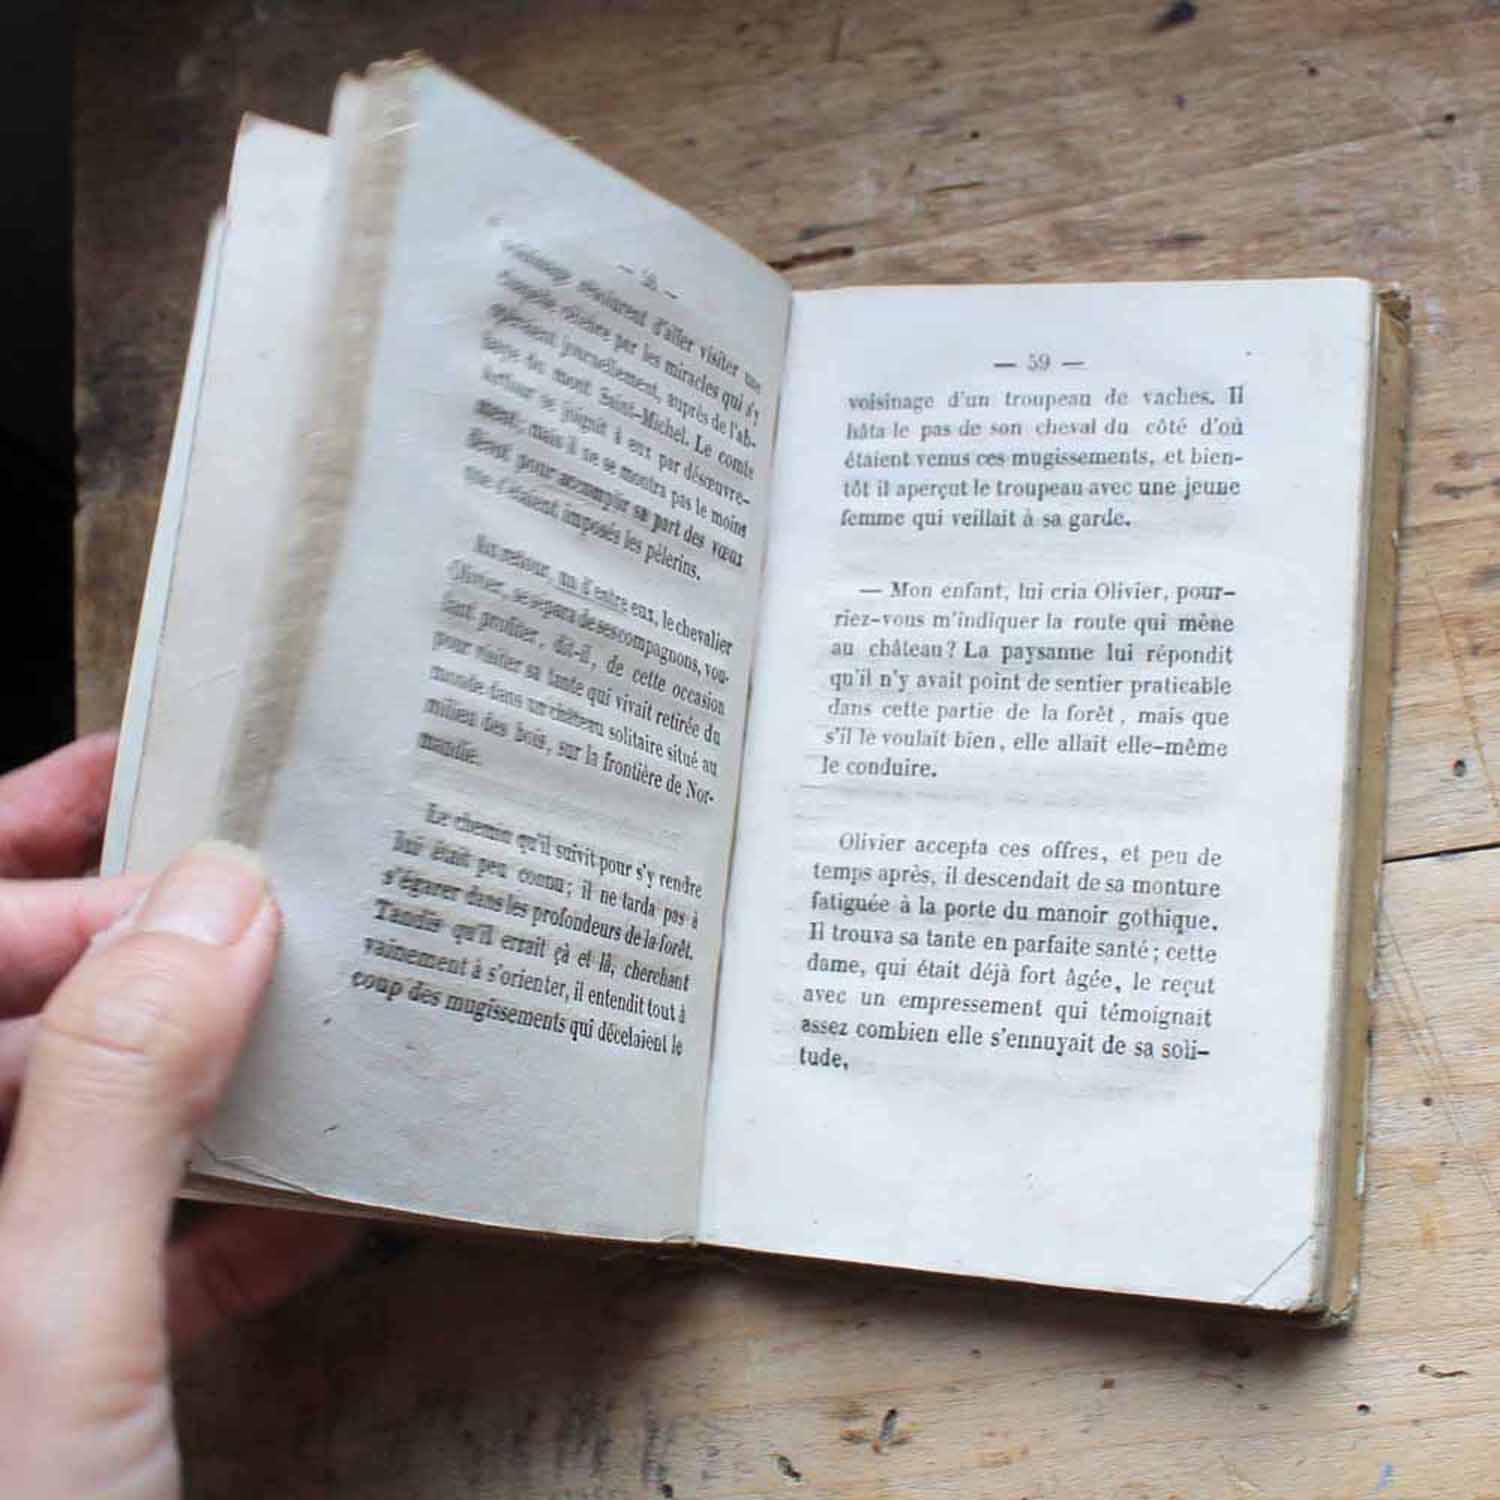 — 58 —
voisinage, résolurent d'aller visiter une
chapelle célèbre par les miracles qui s'y
opéraient journellement, auprès de l'ab-
baye du mont Saint-Michel. Le comte
Arthur se joignit à eux par désœuvre-
ment; mais il ne se montra pas le moins
pour accomplir sa part des vœux
que s'étaient imposés les pèlerins.
Au retour, un d'entre eux, le chevalier
Olivier, se sépara de ses compagnons, vou-
lant profiter, dit-il, de cette occasion
pour visiter sa tante qui vivait retirée du
monde dans un château solitaire situé au
milieu des bois, sur la frontière de Nor-
mandie.
Le chemin qu'il suivit pour s'y rendre
lui était peu connu; il ne tarda pas à
s'égarer dans les profondeurs de la forêt.
Tandis qu'il errait çà et là, cherchant
vainement à s'orienter, il entendit tout à
coup des mugissements qui décelaient le
— 59 —
voisinage d'un troupeau de vaches. Il
hâta le pas de son cheval du côté d'où
étaient venus ces mugissements, et bien-
tôt il aperçut le troupeau avec une jeune
femme qui veillait à sa garde.
— Mon enfant, lui cria Olivier, pour-
riez-vous m'indiquer la route qui mène
au château? La paysanne lui répondit
qu'il n'y avait point de sentier praticable
dans cette partie de la forêt, mais que
s'il le voulait bien, elle allait elle-même
le conduire.
Olivier accepta ces offres, et peu de
temps après, il descendait de sa monture
fatiguée à la porte du manoir gothique.
Il trouva sa tante en parfaite santé; cette
dame, qui était déjà fort âgée, le reçut
avec un empressement qui témoignait
assez combien elle s'ennuyait de sa soli-
tude,